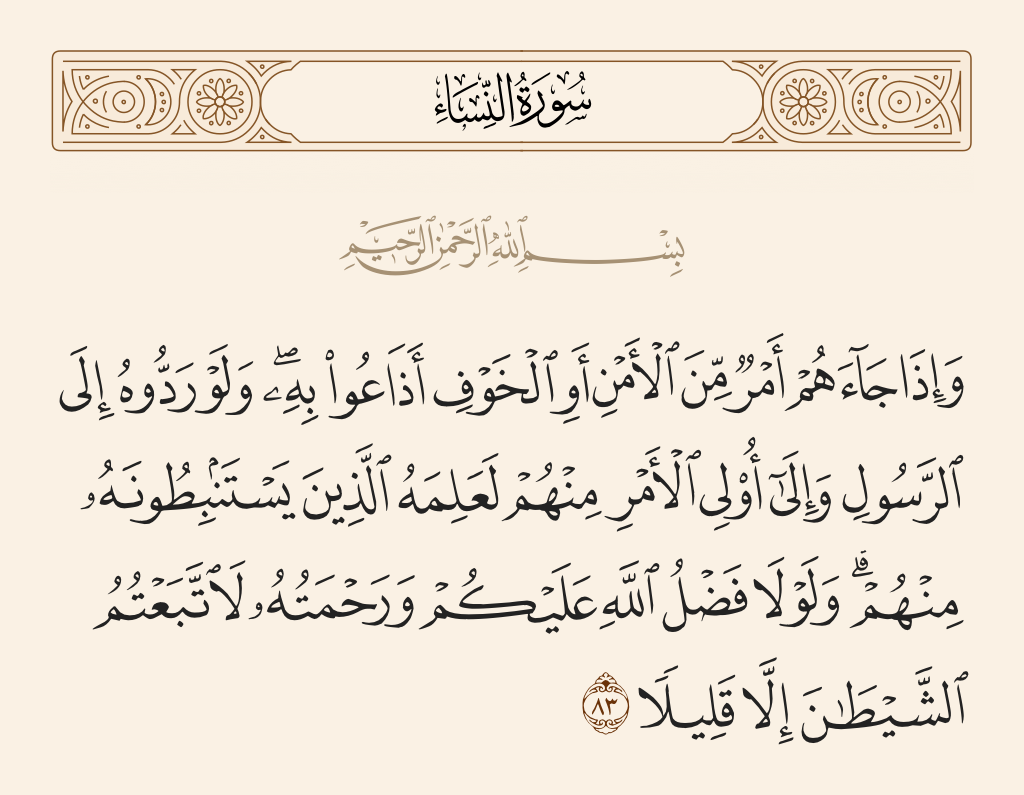 سُورَةُ النِّسَاءِ
بِسْمِ ٱللَّهِ ٱلرَّحْمَٰنِ ٱلرَّحِيمِ
وَإِذَا جَآءَهُمْ أَمْرٌ مِّنَ ٱلْأَمْنِ أَوِ ٱلْخَوْفِ أَذَاعُوا۟ بِهِۦ ۖ وَلَوْ رَدُّوهُ إِلَى
ٱلرَّسُولِ وَإِلَىٰٓ أُو۟لِى ٱلْأَمْرِ مِنْهُمْ لَعَلِمَهُ ٱلَّذِينَ يَسْتَنۢبِطُونَهُۥ
مِنْهُمْ ۗ وَلَوْلَا فَضْلُ ٱللَّهِ عَلَيْكُمْ وَرَحْمَتُهُۥ لَٱتَّبَعْتُمُ
ٱلشَّيْطَٰنَ إِلَّا قَلِيلًا ٨٣